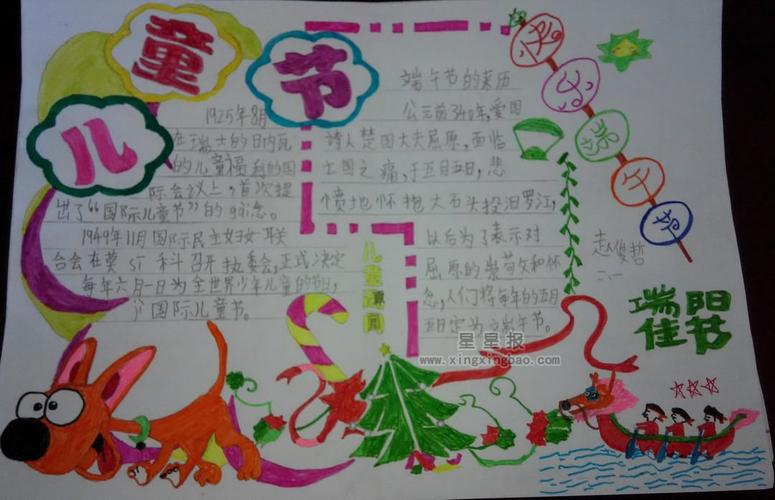 儿童节
1925年8月
在瑞士的日内瓦
的儿童福利的国
际会议上，首次提
出了“国际儿童节”的gǎi念。
1949年11月国际民主妇女联
合会在莫sī科召开执委会，正式决定
每年六月一日为全世界少年儿童的节日，
国际儿童节。
端午节的来历
公元前340年，爱国
诗人楚国大夫屈原，面临
亡国之痛，于五月五日，悲
愤地怀抱大石头投汨罗江，
以后为了表示对
屈原的崇敬和怀
念，人们将每年的五月
五日定为端午节。
快乐端午节
赵俊哲
二.一
儿童
星星报
www.xingxingbao.com
端阳
佳节